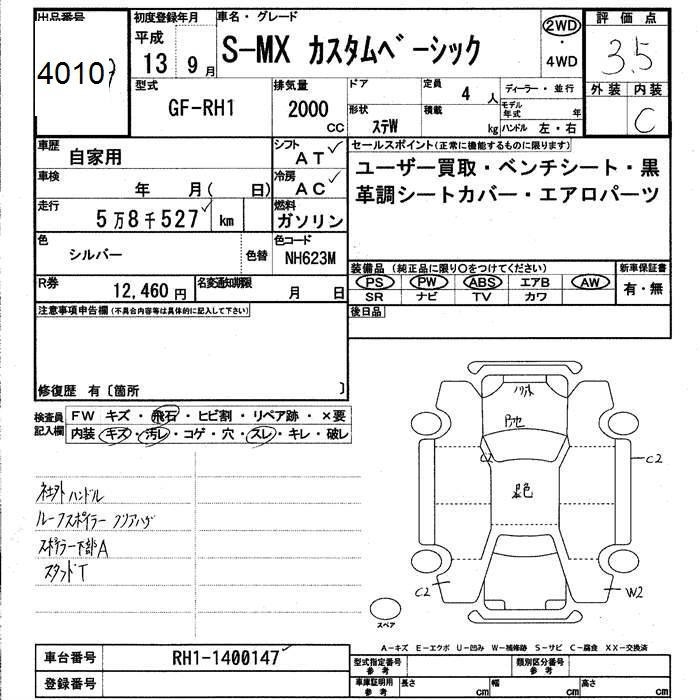 出品番号
4010
初度登録年月
平成
13 9月
車名・グレード
S-MX カスタムベーシック
2WD
・
4WD
評価点
3.5
外装 内装
C
型式
GF-RH1
排気量
2000
CC
ドア
形状
ステW
定員
4 人
積載
kg
ディーラー・並行
モデル年式 年
ハンドル 左・右
車歴
自家用
シフト
AT
車検
年 月( 日)
冷房
AC
走行
5万8千527 km
燃料
ガソリン
色
シルバー
色替
色コード
NH623M
R券
12,460 円
名変通知期限
月 日
セールスポイント(正常に機能するものに限ります)
ユーザー買取・ベンチシート・黒
革調シートカバー・エアロパーツ
装備品 (純正品に限り○をつけてください)
PS PW ABS エアB AW
SR ナビ TV カワ
新車保証書
有・無
後日品
注意事項申告欄(不具合内容等は具体的に記入して下さい)
修復歴 有〔箇所 〕
検査員
記入欄
FW キズ・飛石・ヒビ割・リペア跡・×要
内装 キズ・汚レ・コゲ・穴・スレ・キレ・破レ
社外ハンドル
ルーフスポイラー クリアハゲ
スポイラー下部A
スタッドT
C2
C2
W2
スペア
A-キズ E-エクボ U-凹み W-補修跡 S-サビ C-腐食 XX-交換済
車台番号
RH1-1400147
登録番号
型式指定番号
参考
類別区分番号
参考
車庫証明用
参考
長さ cm
幅 cm
高さ cm